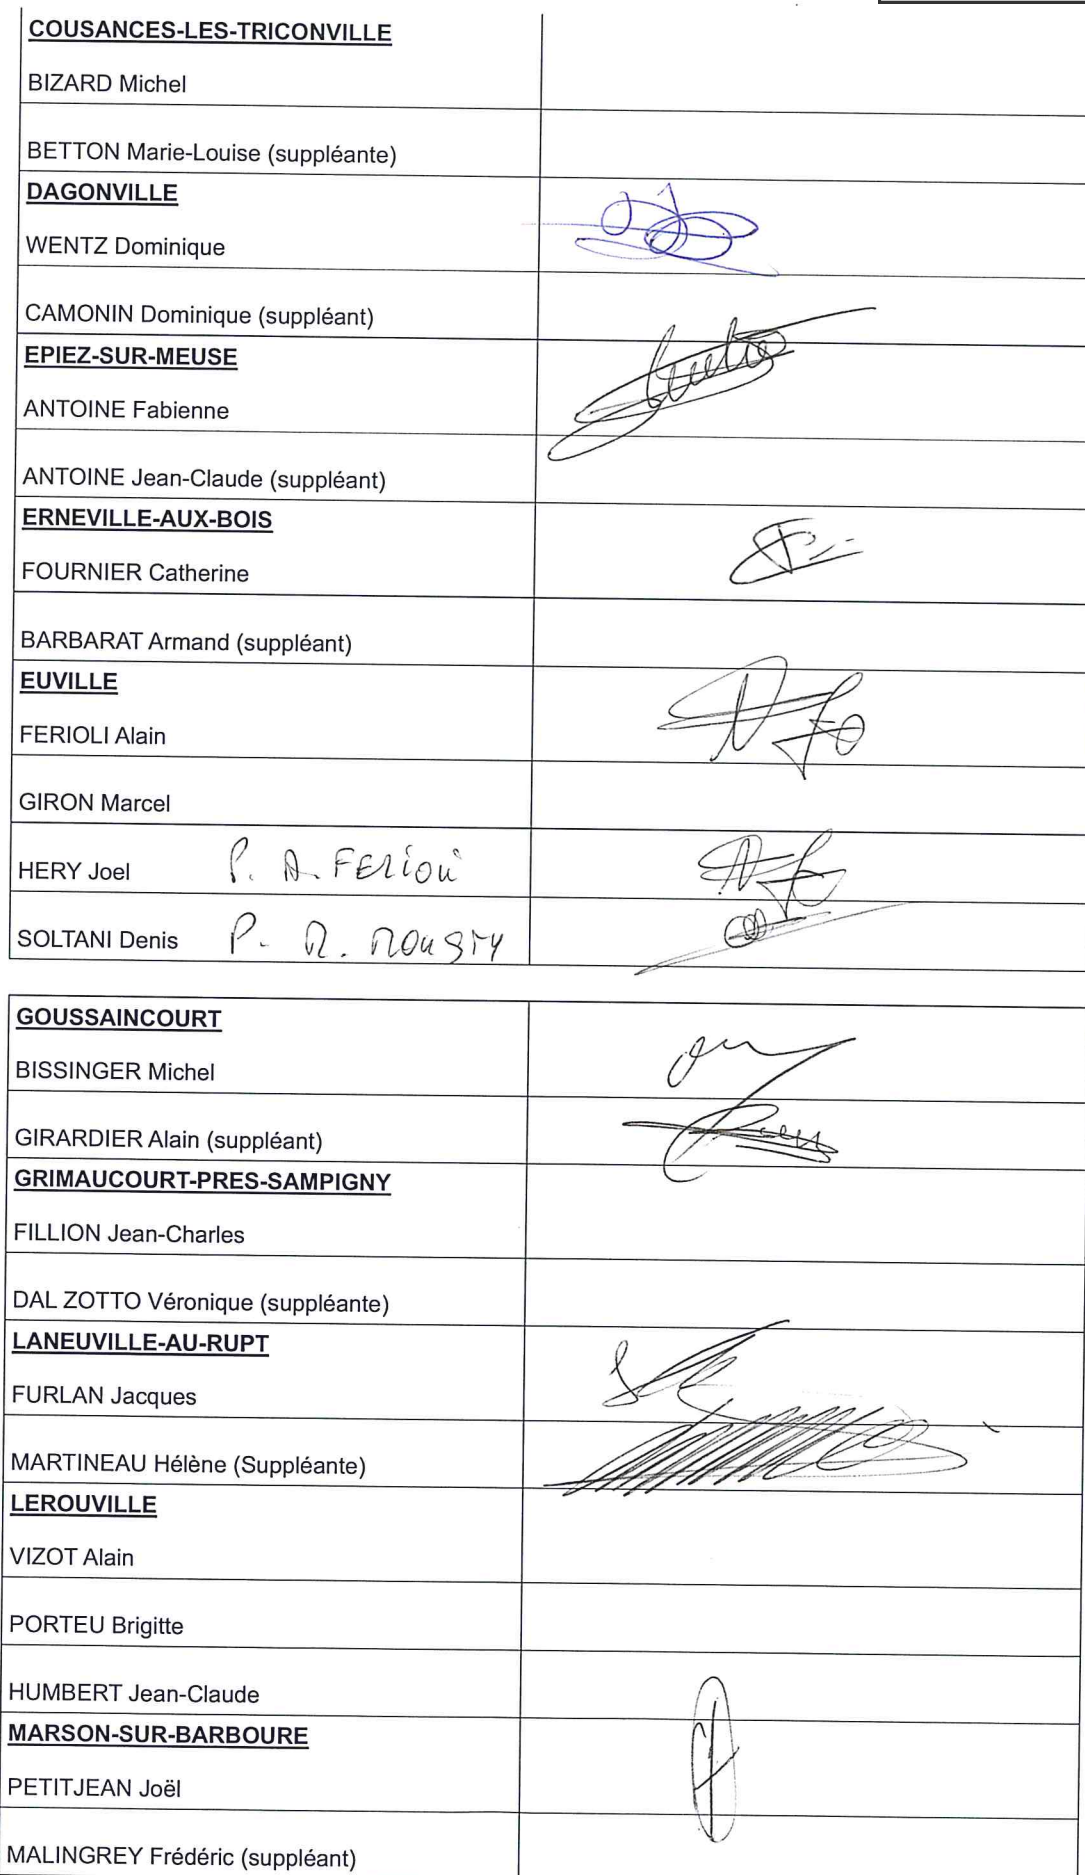 COUSANCES-LES-TRICONVILLE
BIZARD Michel
BETTON Marie-Louise (suppléante)
DAGONVILLE
WENTZ Dominique
CAMONIN Dominique (suppléant)
EPIEZ-SUR-MEUSE
ANTOINE Fabienne
ANTOINE Jean-Claude (suppléant)
ERNEVILLE-AUX-BOIS
FOURNIER Catherine
BARBARAT Armand (suppléant)
EUVILLE
FERIOLI Alain
GIRON Marcel
HERY Joel P. A. FERIOLI
SOLTANI Denis P. R.
GOUSSAINCOURT
BISSINGER Michel
GIRARDIER Alain (suppléant)
GRIMAUCOURT-PRES-SAMPIGNY
FILLION Jean-Charles
DAL ZOTTO Véronique (suppléante)
LANEUVILLE-AU-RUPT
FURLAN Jacques
MARTINEAU Hélène (Suppléante)
LEROUVILLE
VIZOT Alain
PORTEU Brigitte
HUMBERT Jean-Claude
MARSON-SUR-BARBOURE
PETITJEAN Joël
MALINGREY Frédéric (suppléant)